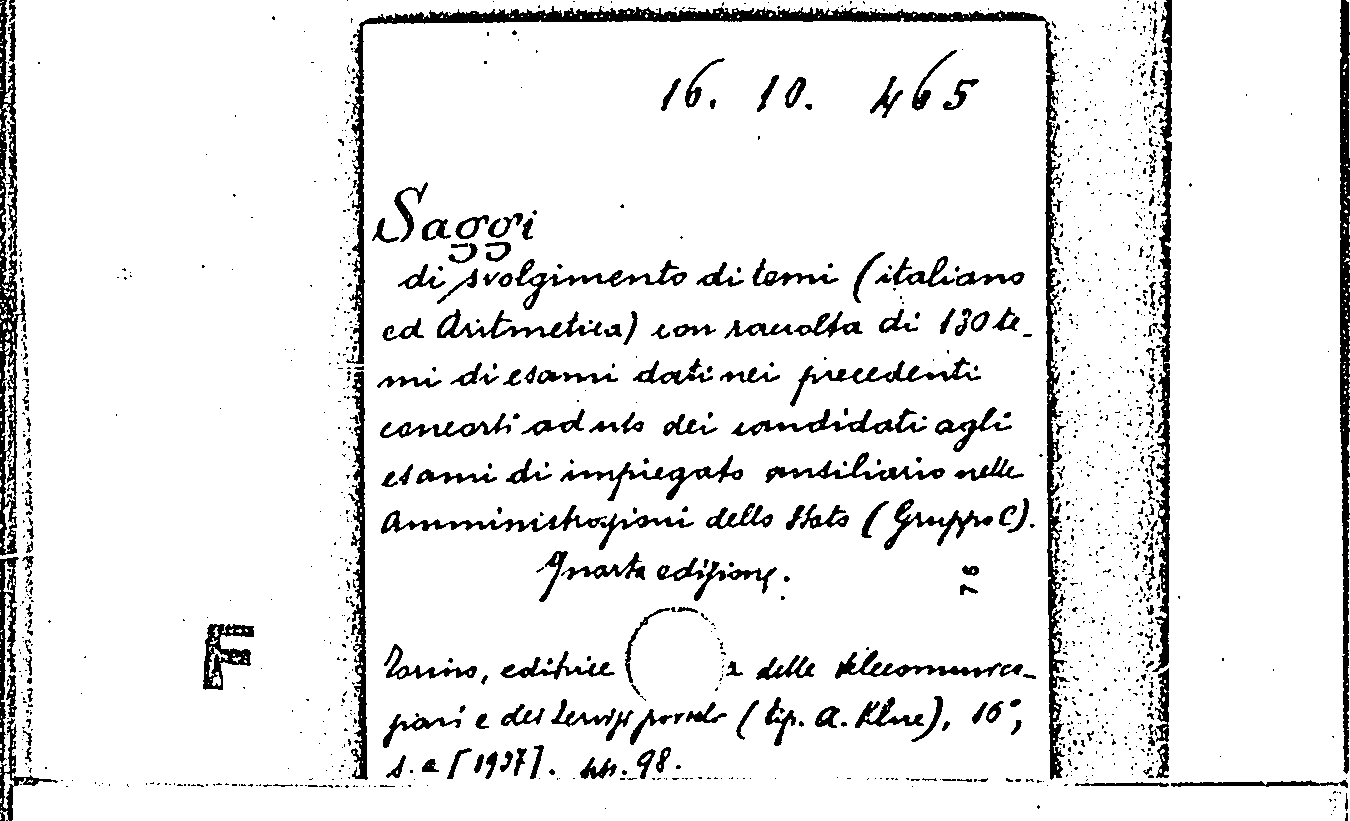 16. 10. 465
Saggi
di svolgimento di temi (italiano
ed Aritmetica) con raccolta di 130 te-
mi di esami dati nei precedenti
concorsi ad uso dei candidati agli
esami di impiegato ausiliario nelle
Amministrazioni dello Stato (Gruppo C).
Quarta edizione.
76
Torino, editrice delle telecomunica-
zioni e dei servizi (tip. A. Klne), 16°,
s. a [1937]. pp. 98.
F